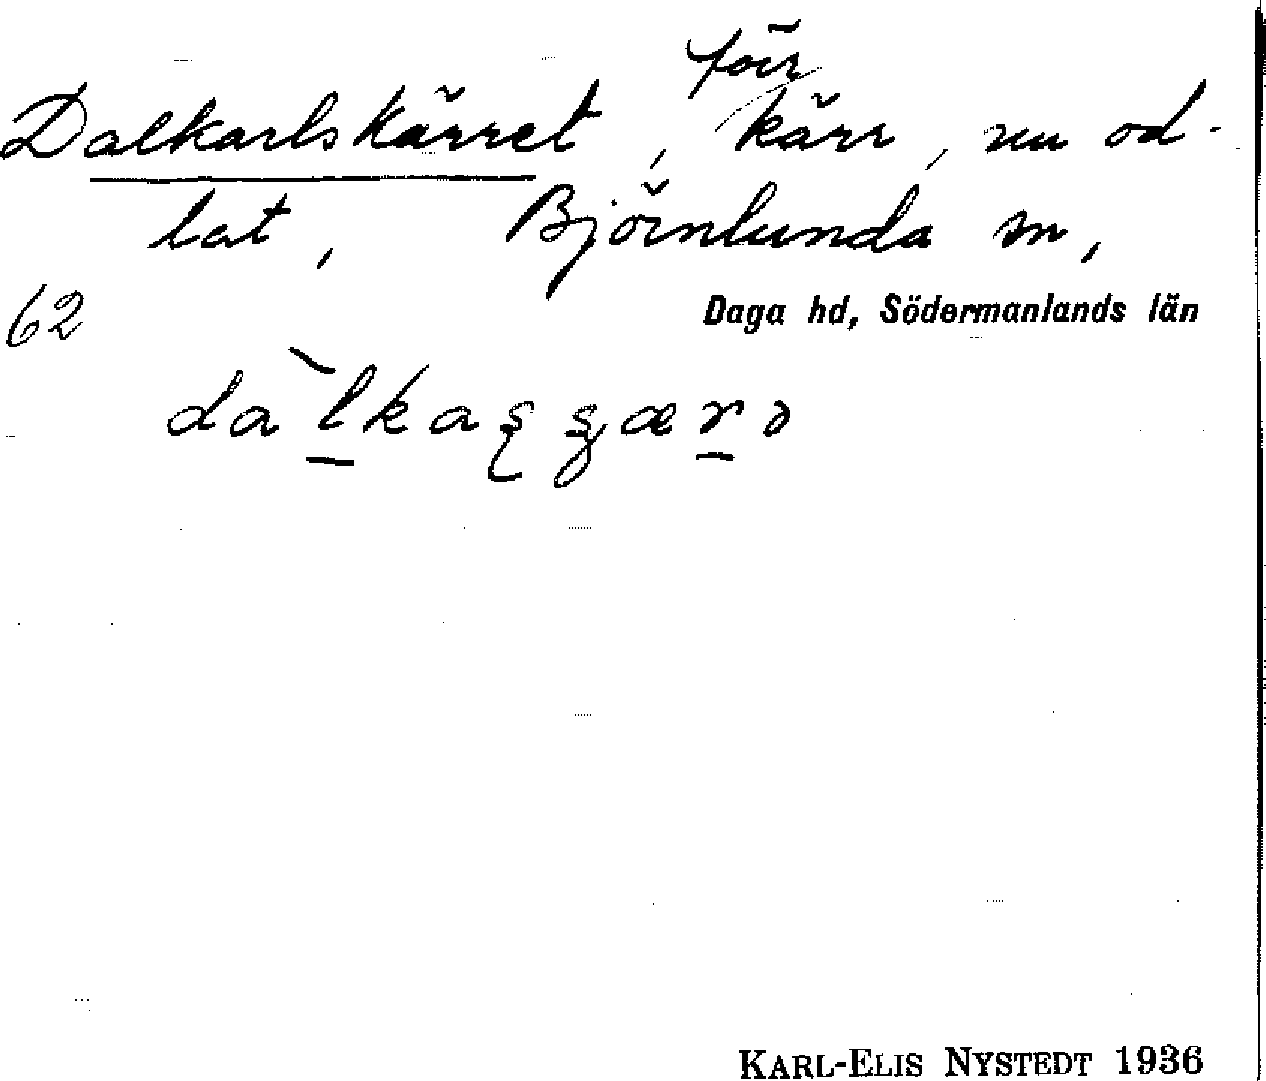 för
Dalkarlskärret, kärr, nu od-
lat, Björnlunda sn,
Daga hd, Södermanlands län
62
KARL-ELIS NYSTEDT 1936